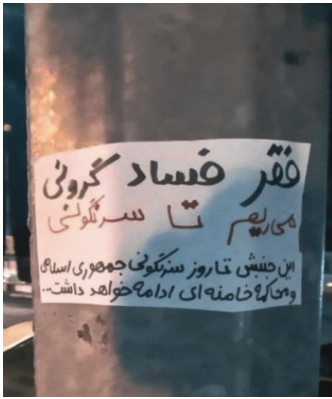 فقر فساد گرونی
می‌ریم تا سرنگونی
این جنبش تا روز سرنگونی جمهوری اسلامی
و محاکمه خامنه‌ای ادامه خواهد داشت...